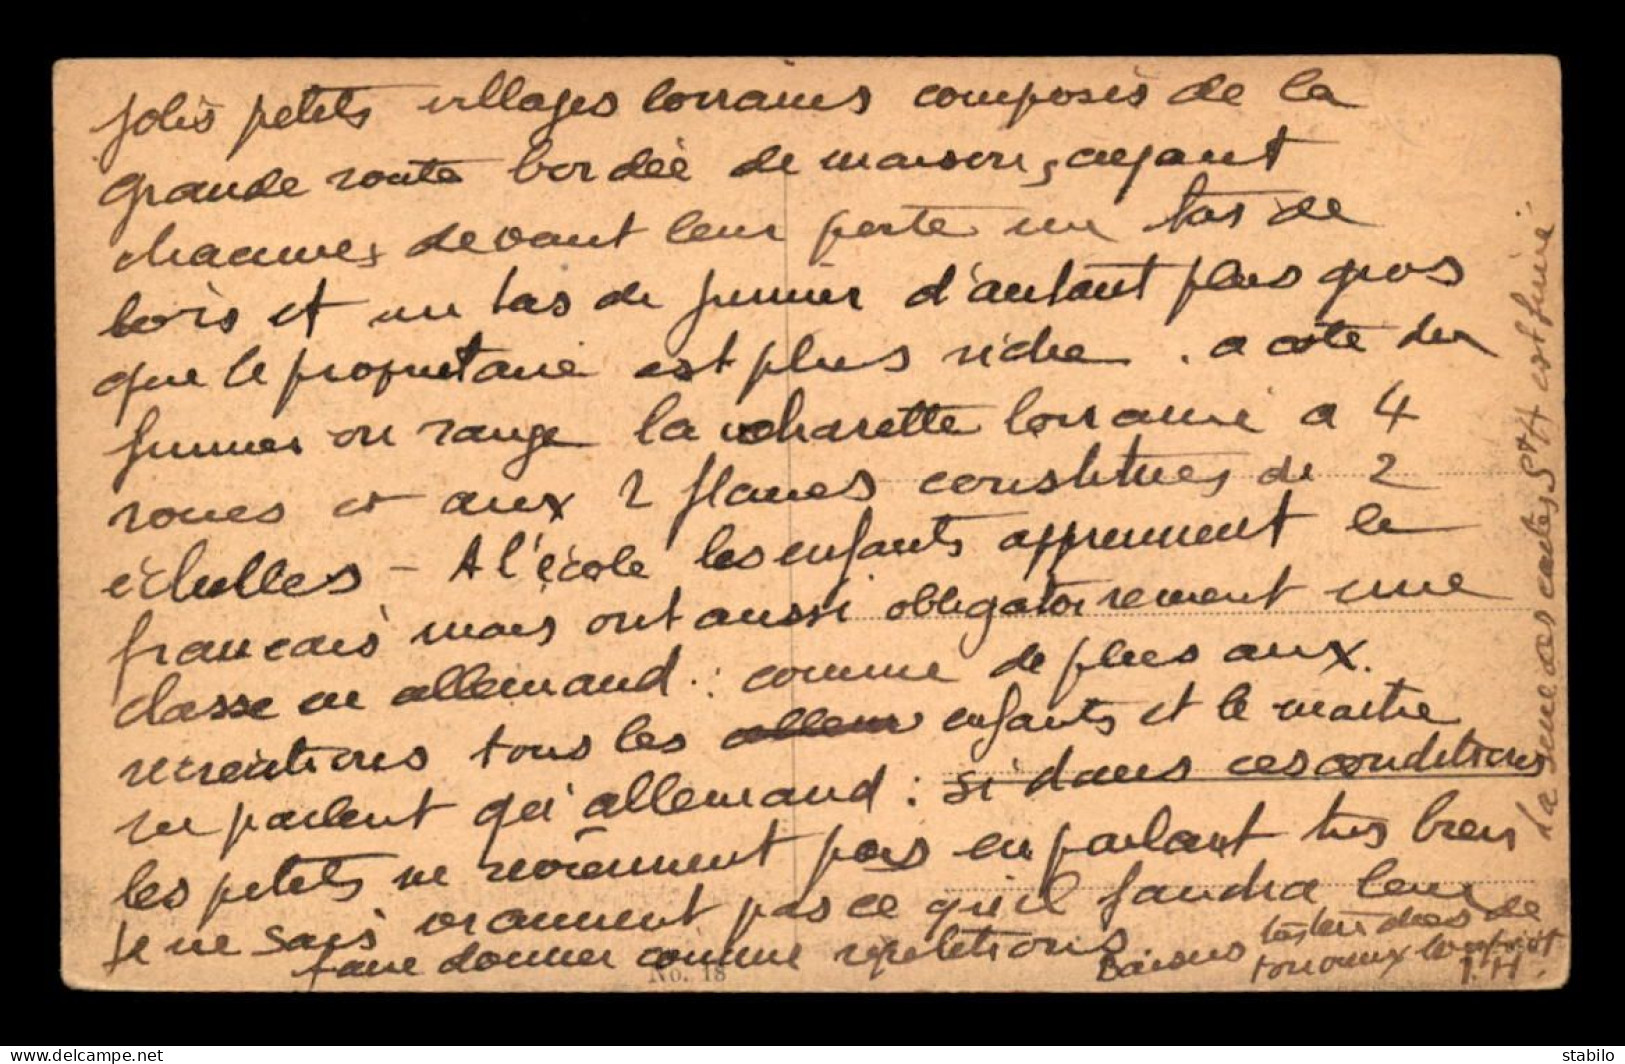 jolis petits villages lorrains composés de la
grande route bordée de maisons, ayant
chacunes devant leur porte un tas de
bois et un tas de fumier d'autant plus gros
que le propriétaire est plus riche. a coté du
fumier on range la charette lorraine a 4
roues et aux 2 flancs constitués de 2
échelles - A l'école les enfants apprennent le
français mais ont aussi obligatoirement une
classe en allemand : comme de plus aux
récréations tous les allem enfants et le maitre
ne parlent qu'allemand : si dans ces conditions
les petits ne reviennent pas en parlant très bien
je ne sais vraiment pas ce qu'il faudra leur
faire donner comme répétitions. Baisers très tendres de
tous deux
J. H.
La série des cartes St H est finie
No. 18
delcampe.net
stabilo